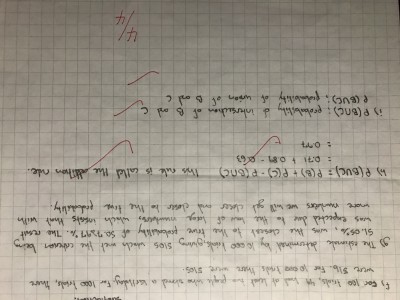 f) For 100 trials, 44 at least a single shared a birthday, for 1000 trials, there
were 516, for 10,000 trials there were 5105.
g) The estimate determined by 10,000 trials, giving 5105 which met the criterion being
51.05%, was the closest to the true probability of 50.7297%. The result
was expected due to the law of large numbers, which insists that with
more numbers we will get closer and closer to the true probability.
h) P(B∪C) = P(B) + P(C) - P(B∩C) This rule is called the addition rule.
= 0.71 + 0.69 - 0.63
= 0.77
i) P(B∩C): probability of intersection of B and C
P(B∪C): probability of union of B and C
4/4